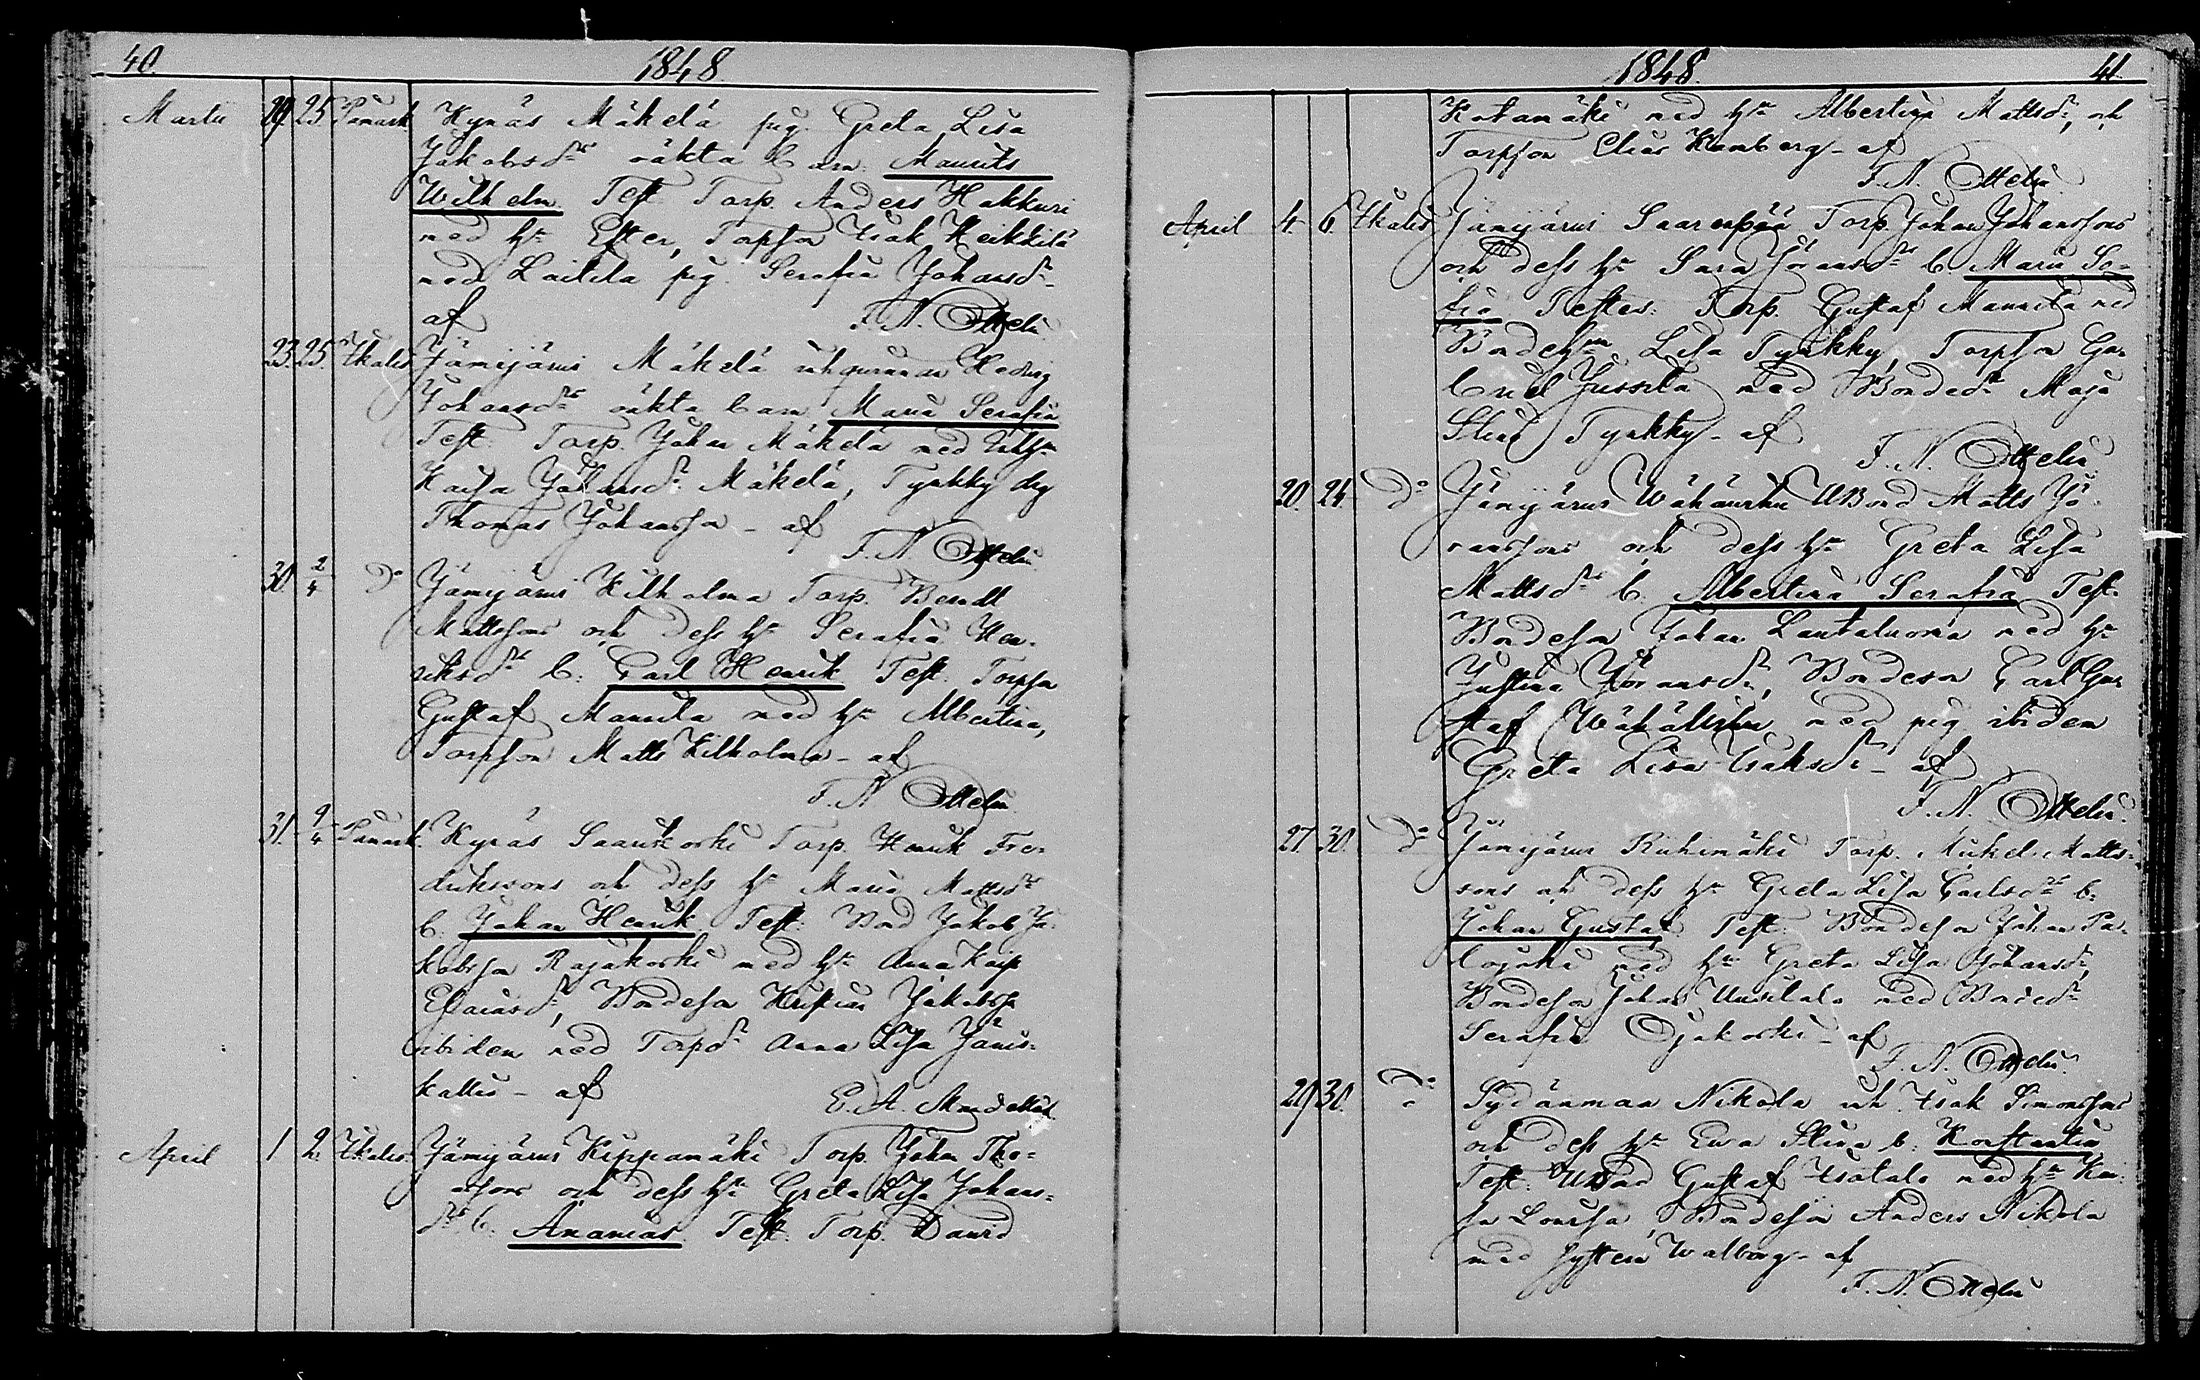 40. 1848
Martii 19. 25 Påmark Kynäs Mäkelä pig. Greta Lisa
Jakobsdrs oäkta barn: Maurits
Wilhelm Test. Torp. Anders Hakkuri
med hu Ester, Torpson Isak Heikkilä
med Laitila pig. Serafia Johansdr
af F. N. Ottelin
23. 25. Ikalis Jämijärvi Mäkelä inhq. Hedvig
Johansdrs oäkta barn Maria Serafia
Test. Torp. Johan Mäkelä med
Kaisa Johansdr Mäkelä, Tynkky drg
Thomas Johansson - af
F. N. Ottelin
30. 2/4 do Jämijärvi Kilholma Torp. Berndt
Mattssons och dess hu Serafia Hen-
riksdrs b: Carl Henrik Test. Torpson
Gustaf Mannila med hu Albertina,
Torpson Matts Kilholma - af
F. N. Ottelin
31. 9/4 Påmark. Kynäs Saarikoski Torp. Henrik Fre-
drikssons och dess hu Maria Mattsdrs
b: Johan Henrik Test. Bond Jakob Ja-
kobsson Rajakoski med hu Anna Kajs
Esaiasdr, Bondeson Jakobsson
ibidem med Torpdr Anna Lisa Jänis-
kallio - af E. A.
April 1 2. Ikalis. Jämijärvi Kippamäki Torp. Johan Tho-
massons och dess hu Greta Lisa Johans-
drs b: Ananias Test. Torp. David
1848. 41.
Katamäki med hu Albertina Mattsdr, och
Torpson Elias Kamberg - af
F. N. Ottelin
April 4. 6. Ikalis Jämijärvi Saarenpää Torp. Johan Johanssons
och dess hu Sara Göransdrs b. Maria So-
fia Testes: Torp. Gustaf Mannila med
Bondehun Lisa Tynkky, Torpson Ga-
briel Jussila med Bondedr Maja
Stina Tynkky - af
F. N. Ottelin
20. 24 do Jämijärvi Wähäuski UBond Matts Jö-
ranssons och dess hu Greta Lisa
Mattsdrs b. Albertina Serafia Test.
Bondeson Johan Lauttaluoma med hu
Justina Jöransdr, Bondeson Carl Gu-
staf Wähäuski med pig ibidem
Greta Lisa Isaksdr - af
F. N. Ottelin
27. 30. do Jämijärvi Riihimäki Torp. Mickel Matts-
sons och dess hu Greta Lisa Carlsdrs b:
Johan Gustaf Test. Bondeson Johan Pa-
lojoki med hu Greta Lisa Johansdr,
Bondeson Johan Uusitalo med Bondedr
Serafia Ojakoski - af
F. N. Ottelin
29 30. do Sydänmaa Nikola inh. Isak Simonssons
och dess hu Ewa Stina b: Konstantin
Test. UBond Gustaf Isotalo med hu Kai-
sa Lovisa, Bondeson Anders Nikola
med systern Walborg - af
F. N. Ottelin